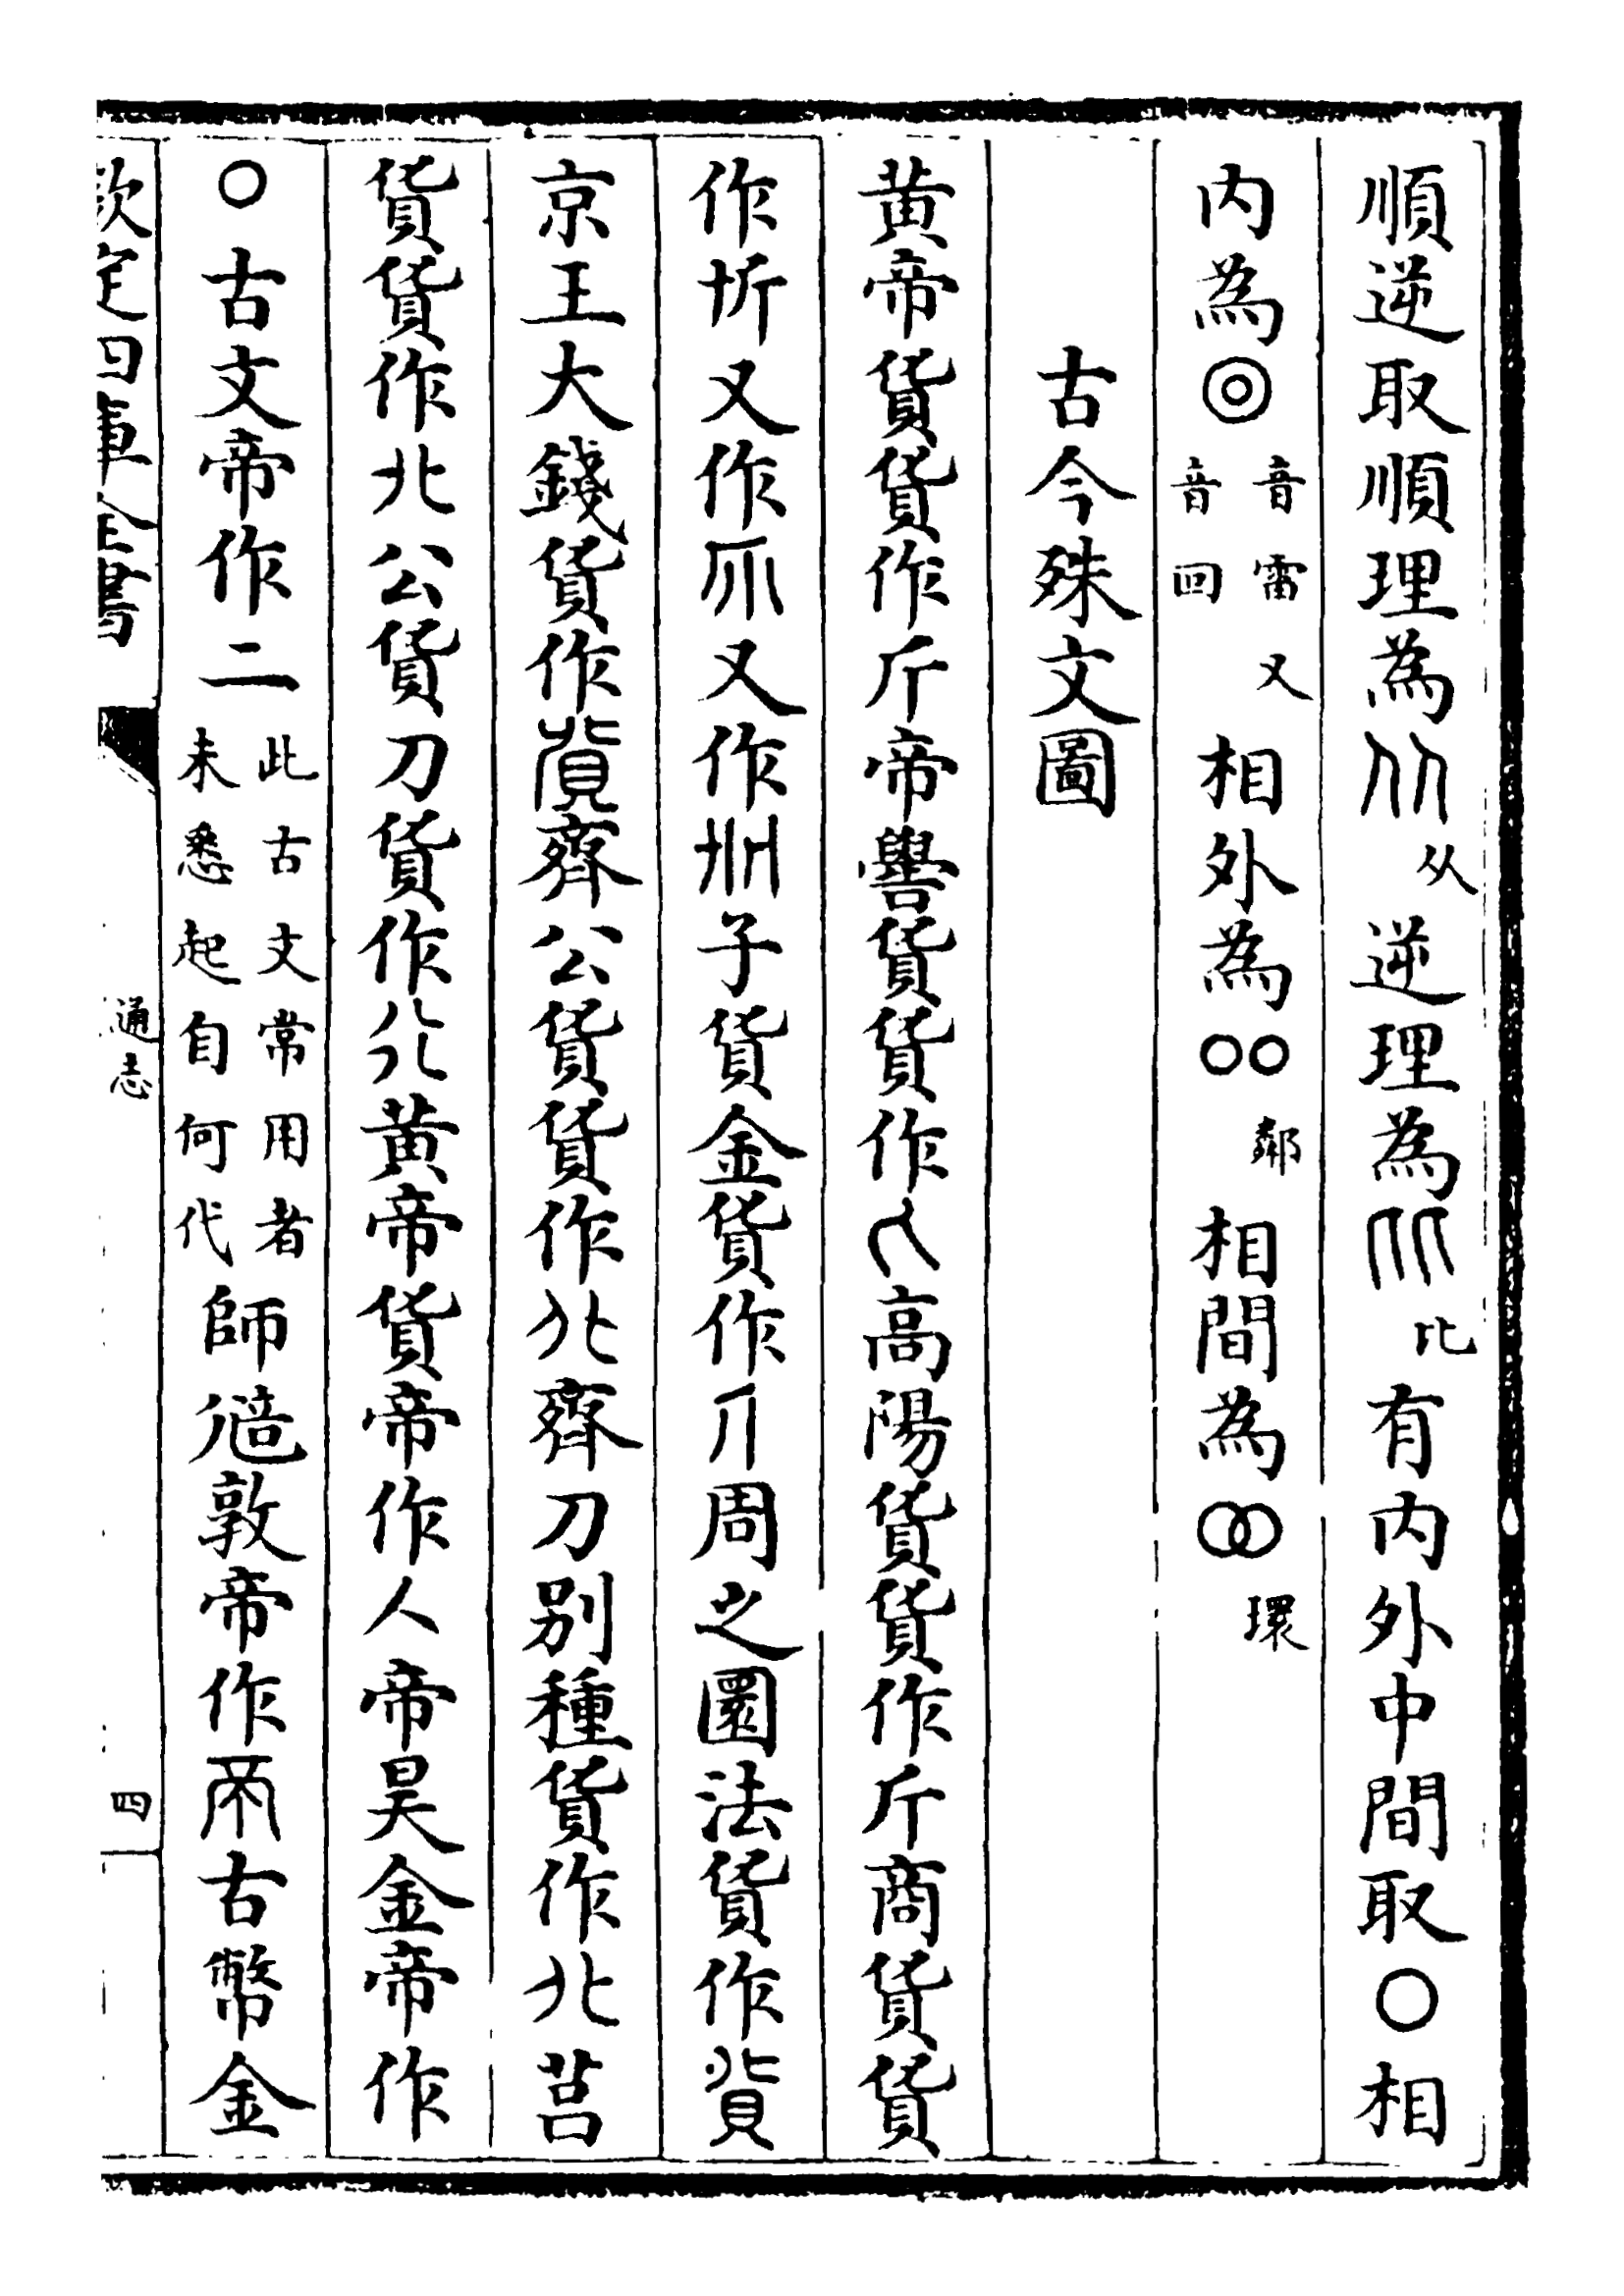 順逆取順理為从从逆理為比有内外中間取〇相
内為◎音雷又音回相外為○○鄰相間為環
古今殊文圖
黄帝貨貨作斤帝嚳貨貨作高陽貨貨作斤商貨貨
作又作又作子貨金貨作周之圜法貨作
京王大錢貨作齊公貨貨作齊刀别種貨作莒
貨貨作公貨刀貨作黄帝貨帝作人帝昊金帝作
〇古文帝作二此古文常用者未悉起自何代師敦帝作古幣金
欽定四庫全書
通志
四